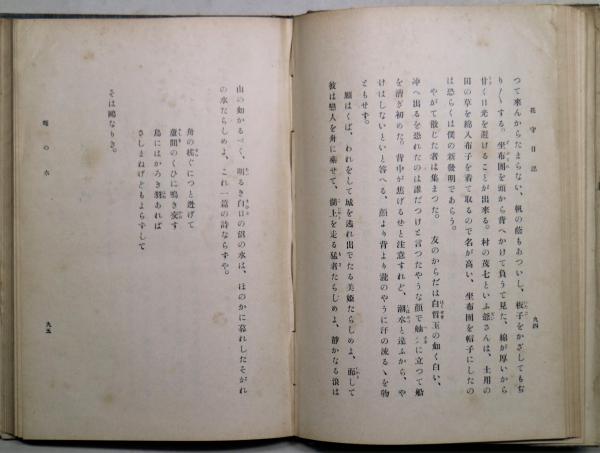 花守日誌
九四
つて來んからたまらない、帆の蔭もあついし、板子をかざしてもぢ
り〳〵する。坐布團を頭から脊へかけて負うて見た、綿が厚いから
甘く日光を避けることが出來る。村の茂七といふ爺さんは、土用の
田の草を綿入布子を着て取るので名が高い、坐布團を帽子にしたの
は恐らくは僕の新發明であらう。
やがて散じた者は集まつた。友のからだは白晳玉の如く白い、
沖へ出るを恐れたのは誰だつけと言つたやうな顏で舳に立つて船
を漕ぎ初めた。背中が焦げるぜと注意すれど、潮水と違ふから、や
けはしないといと答へる、顏より脊より瀧のやうに汗の流るゝを物
ともせず。
願はくば、われをして城を逃れ出でたる美姬たらしめよ、而して
彼は戀人を舟に乘せて、湖上を走る猛者たらしめよ、靜かなる浪は
山の如かるべく、明るき白日の
の水は、ほのかに暮れしたそがれ
の水たらしめよ、これ一篇の詩ならずや。
舟の
ぐにつと逃げて
葭間のくひに鳴き交す
鳥にはかろき羽あれば
さしまねげどもよらずして
そは鷗なりき。
の水
九五